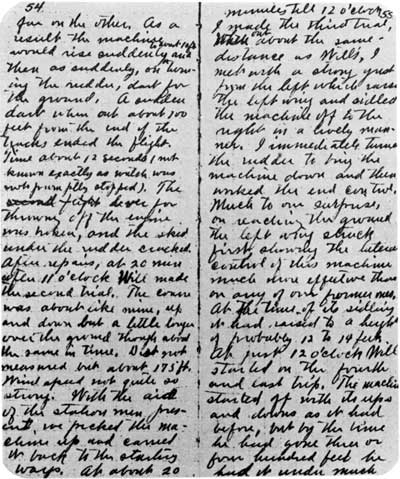 54.
far on the other. As a
result the machine
would rise suddenly to about 10 ft.
then as suddenly, on turn-
ing the rudder, dart for
the ground. A sudden
dart when out about 100
feet from the end of the
tracks ended the flight.
Time about 12 seconds (not
known exactly as watch was
not promptly stopped). The
lever for
throwing off the engine
was broken, and the skid
under the rudder cracked.
After repairs, at 20 min
after 11 o'clock Will made
the second trial. The course
was about like mine, up
and down but a little longer
over the ground though about
the same in time. Dist not
measured but about 175 ft.
Wind speed not quite so
strong. With the aid
of the station men pres-
ent, we picked the ma-
chine up and carried
it back to the starting
ways. At about 20
55
minutes till 12 o'clock
I made the third trial,
When out about the same
distance as Will's, I
met with a strong gust
from the left which raised
the left wing and sidled
the machine off to the
right in a lively man-
ner. I immediately turned
the rudder to bring the
machine down and then
worked the end control.
Much to our surprise,
on reaching the ground
the left wing struck
first, showing the lateral
control of this machine
much more effective than
on any of our former ones.
At the time of its sidling
it had raised to a height
of probably 12 to 14 feet.
At just 12 o'clock Will
started on the fourth
and last trip. The machine
started off with its ups
and downs as it had
before, but by the time
he had gone three or
four hundred feet he
had it under much